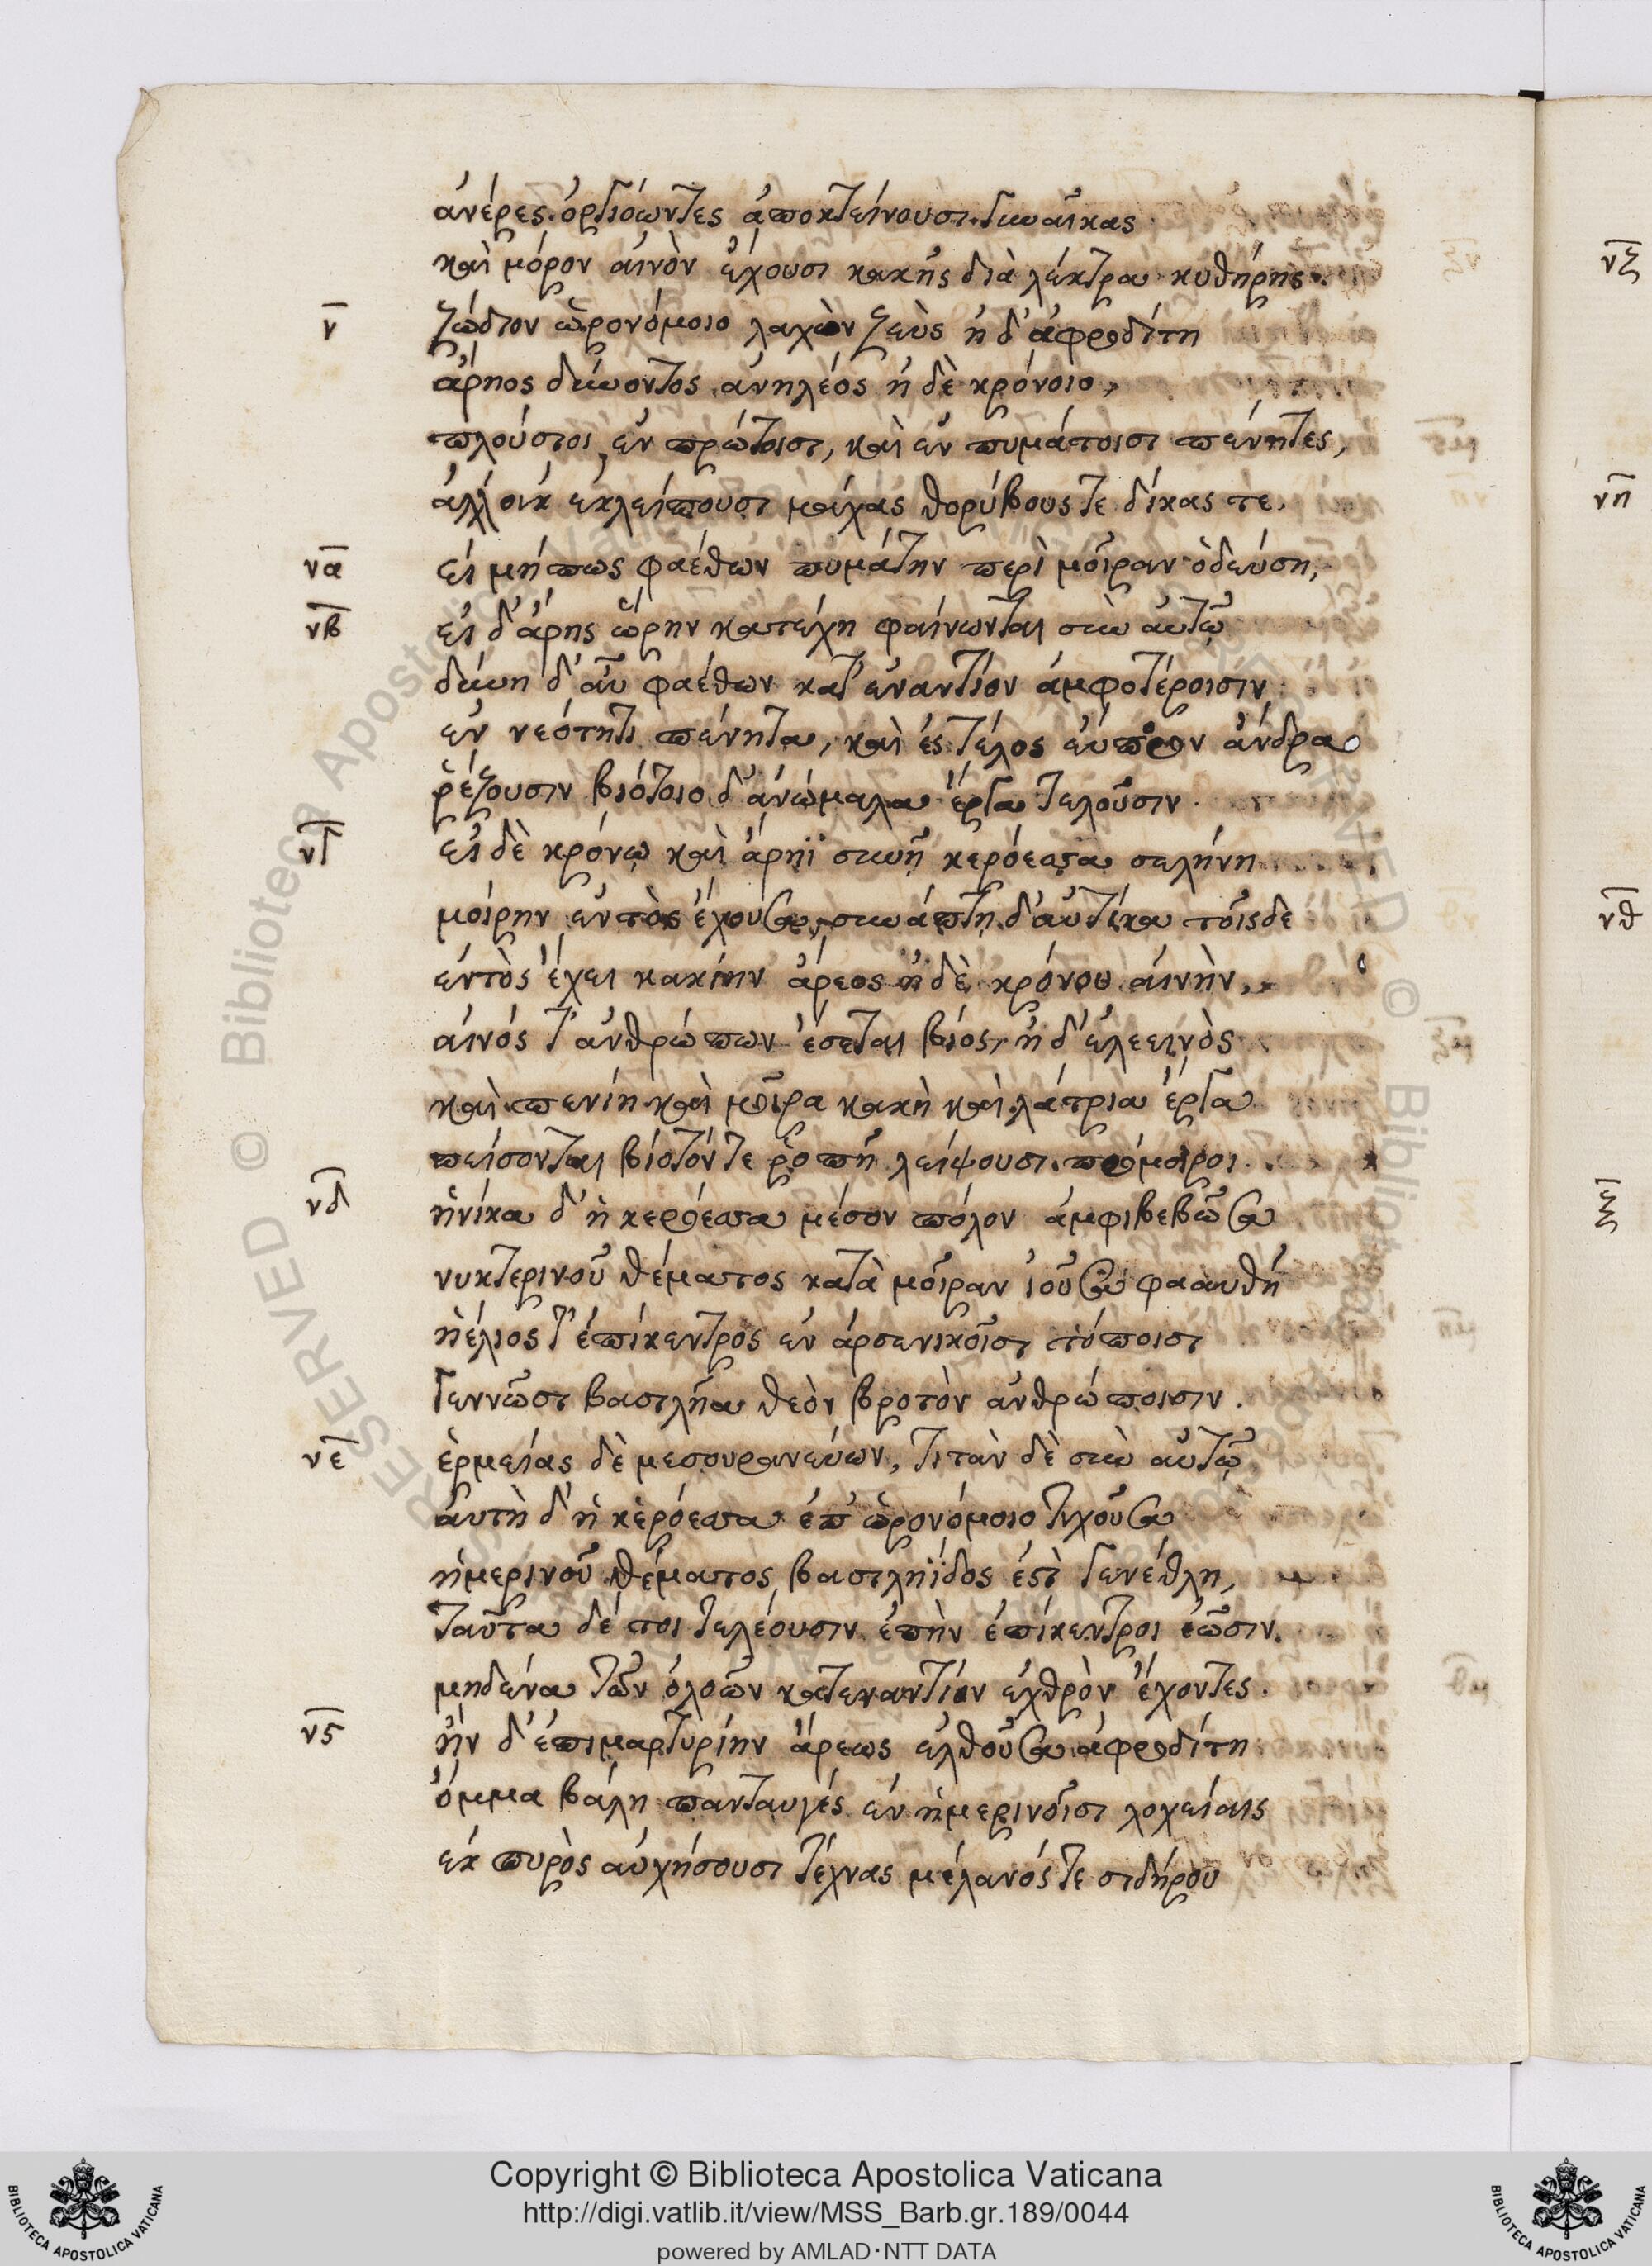 ἀνέρες ὀργιόωντες ἀποκτείνουσι γυναῖκας
καὶ μόρον αἰνὸν ἔχουσι κακῆς διὰ λέκτρα κυθήρης.
ν̅ ζώδιον ὡρονόμοιο λαχὼν ζεὺς ἠδ' ἀφροδίτη
ἄρηος δύνοντος ἀνηλέος ἠδὲ κρόνοιο,
πλούσιοι ἐν πρώτοισι, καὶ ἐν πυμάτοισι πένητες,
ἀλλ' οὐκ ἐκλείπουσι μάχας θορύβους τε δίκας τε.
να̅ εἰ μήπως φαέθων πυμάτην περὶ μοῖραν ὁδεύση,
νβ̅ εἰ δ' ἄρης ὥρην κατέχη φαίνωνται σὺν αὐτῶ
δύνη δ' αὖ φαέθων κατ' ἐναντίον ἀμφοτέροισιν
ἐν νεότητι πένητα, καὶ ἐς τέλος εὔπορον ἄνδρα
ῥέζουσιν βιότοιο δ' ἀνώμαλα ἔργα τελοῦσιν.
νγ̅ εἰ δὲ κρόνω καὶ ἄρηϊ συνῆ κερόεσσα σελήνη
μοίρην ἐντὸς ἔχουσα, συνάπτη δ' αὐτίκα τοῖσδε
ἐντὸς ἔχει κακίην ἄρεος ἠδὲ κρόνου αἰνὴν,
αἰνός τ' ἀνθρώπων ἔσεται βίος, ἠδ' ἐλεεινὸς
καὶ πενίη καὶ μοῖρα κακὴ καὶ λάτρια ἔργα
πείσονται βίοτόν τε ῥοπῆ λείψουσι πρόμοιροι.
νδ̅ ἡνίκα δ' ἡ κερόεσσα μέσον πόλον ἀμφιβεβῶσα
νυκτερινοῦ θέματος κατὰ μοῖραν ἰοῦσα φαανθῆ
ἠέλιος τ' ἐπίκεντρος ἐν ἀρσενικοῖσι τόποισι
γεννῶσι βασιλῆα θεὸν βροτὸν ἀνθρώποισιν.
νε̅ ἑρμείας δὲ μεσουρανεύων, τιτὰν δὲ σὺν αὐτῶ
αὐτὴ δ' ἡ κερόεσσα ἐπ' ὡρονόμοιο τυχοῦσα
ἡμερινοῦ θέματος βασιληΐδος ἐστὶ γενέθλη,
ταῦτα δέ τοι τελέουσιν ἐπὴν ἐπίκεντροι ἐῶσιν.
μηδένα τῶν ὀλοῶν κατεναντίον ἐχθρὸν ἔχοντες.
νϛ̅ ἢν δ' ἐπιμαρτυρίην ἄρεως ἐλθοῦσα ἀφροδίτη
ὄμμα βάλη πανταυγές ἐν ἡμερινοῖσι λοχείαις
ἐκ πυρὸς αὐχήσουσι τέχνας μέλανός τε σιδήρου
νζ̅
νη̅
νθ̅
Copyright © Biblioteca Apostolica Vaticana
http://digi.vatlib.it/view/MSS_Barb.gr.189/0044
powered by AMLAD·NTT DATA
BIBLIOTECA APOSTOLICA VATICANA
BIBLIOTECA APOSTOLICA VATICANA